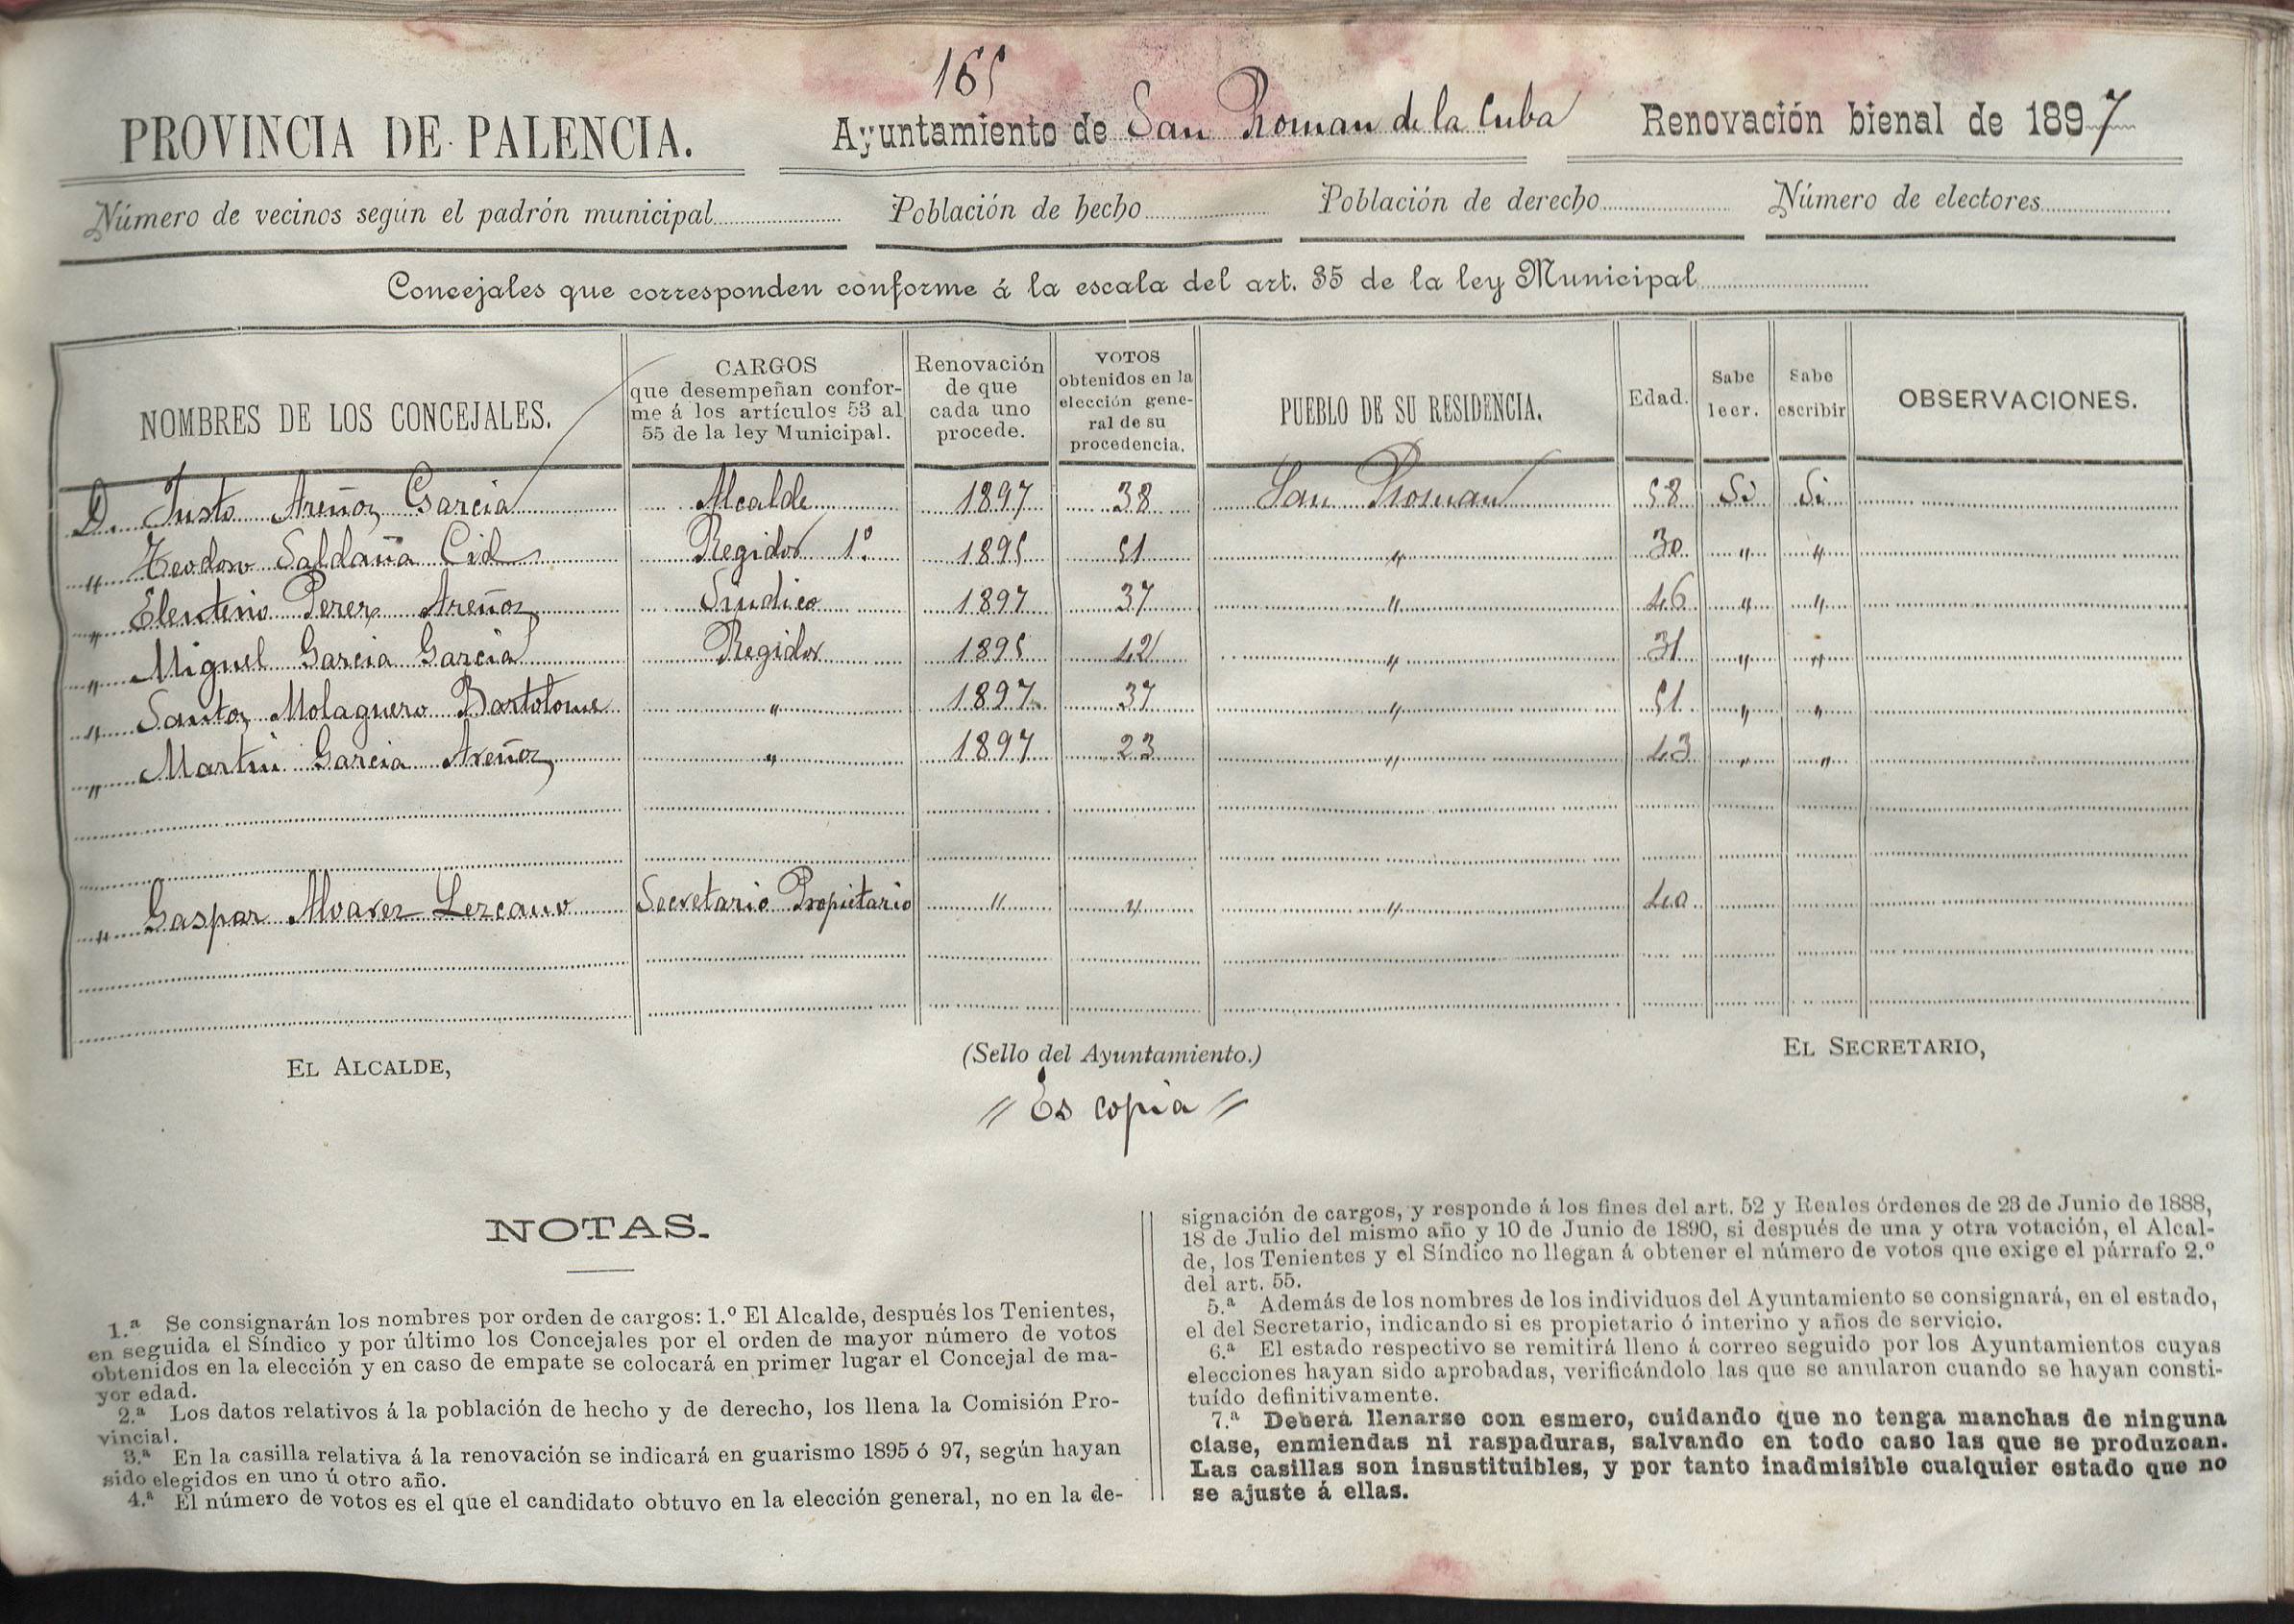 165
PROVINCIA DE PALENCIA.
Ayuntamiento de San Roman de la Cuba
Renovación bienal de 1897
Número de vecinos según el padrón municipal
Población de hecho
Población de derecho
Número de electores
Concejales que corresponden conforme á la escala del art. 35 de la ley Municipal
NOMBRES DE LOS CONCEJALES.
CARGOS
que desempeñan confor-
me á los artículos 53 al
55 de la ley Municipal.
Renovación
de que
cada uno
procede.
VOTOS
obtenidos en la
elección gene-
ral de su
procedencia.
PUEBLO DE SU RESIDENCIA.
Edad.
Sabe
leer.
Sabe
escribir
OBSERVACIONES.
D. Justo Areños Garcia Alcalde 1897 38 San Roman 58 Si Si
" Teodoro Saldaña Cid Regidor 1º 1895 51 " 30 " "
" Eleuterio Perez Areños Sindico 1897 37 " 46 " "
" Miguel Garcia Garcia Regidor 1895 42 " 31 " "
" Santos Molaguero Bartolome " 1897 37 " 51 " "
" Martin Garcia Areños " 1897 23 " 43 " "
" Gaspar Alvarez Lezcano Secretario Propietario " " " 40
EL ALCALDE,
(Sello del Ayuntamiento.)
EL SECRETARIO,
// Es copia //
NOTAS.
1.ª Se consignarán los nombres por orden de cargos: 1.º El Alcalde, después los Tenientes,
en seguida el Síndico y por último los Concejales por el orden de mayor número de votos
obtenidos en la elección y en caso de empate se colocará en primer lugar el Concejal de ma-
yor edad.
2.ª Los datos relativos á la población de hecho y de derecho, los llena la Comisión Pro-
vincial.
3.ª En la casilla relativa á la renovación se indicará en guarismo 1895 ó 97, según hayan
sido elegidos en uno ú otro año.
4.ª El número de votos es el que el candidato obtuvo en la elección general, no en la de-
signación de cargos, y responde á los fines del art. 52 y Reales órdenes de 23 de Junio de 1888,
18 de Julio del mismo año y 10 de Junio de 1890, si después de una y otra votación, el Alcal-
de, los Tenientes y el Síndico no llegan á obtener el número de votos que exige el párrafo 2.º
del art. 55.
5.ª Además de los nombres de los individuos del Ayuntamiento se consignará, en el estado,
el del Secretario, indicando si es propietario ó interino y años de servicio.
6.ª El estado respectivo se remitirá lleno á correo seguido por los Ayuntamientos cuyas
elecciones hayan sido aprobadas, verificándolo las que se anularon cuando se hayan consti-
tuído definitivamente.
7.ª Deberá llenarse con esmero, cuidando que no tenga manchas de ninguna
clase, enmiendas ni raspaduras, salvando en todo caso las que se produzcan.
Las casillas son insustituibles, y por tanto inadmisible cualquier estado que no
se ajuste á ellas.